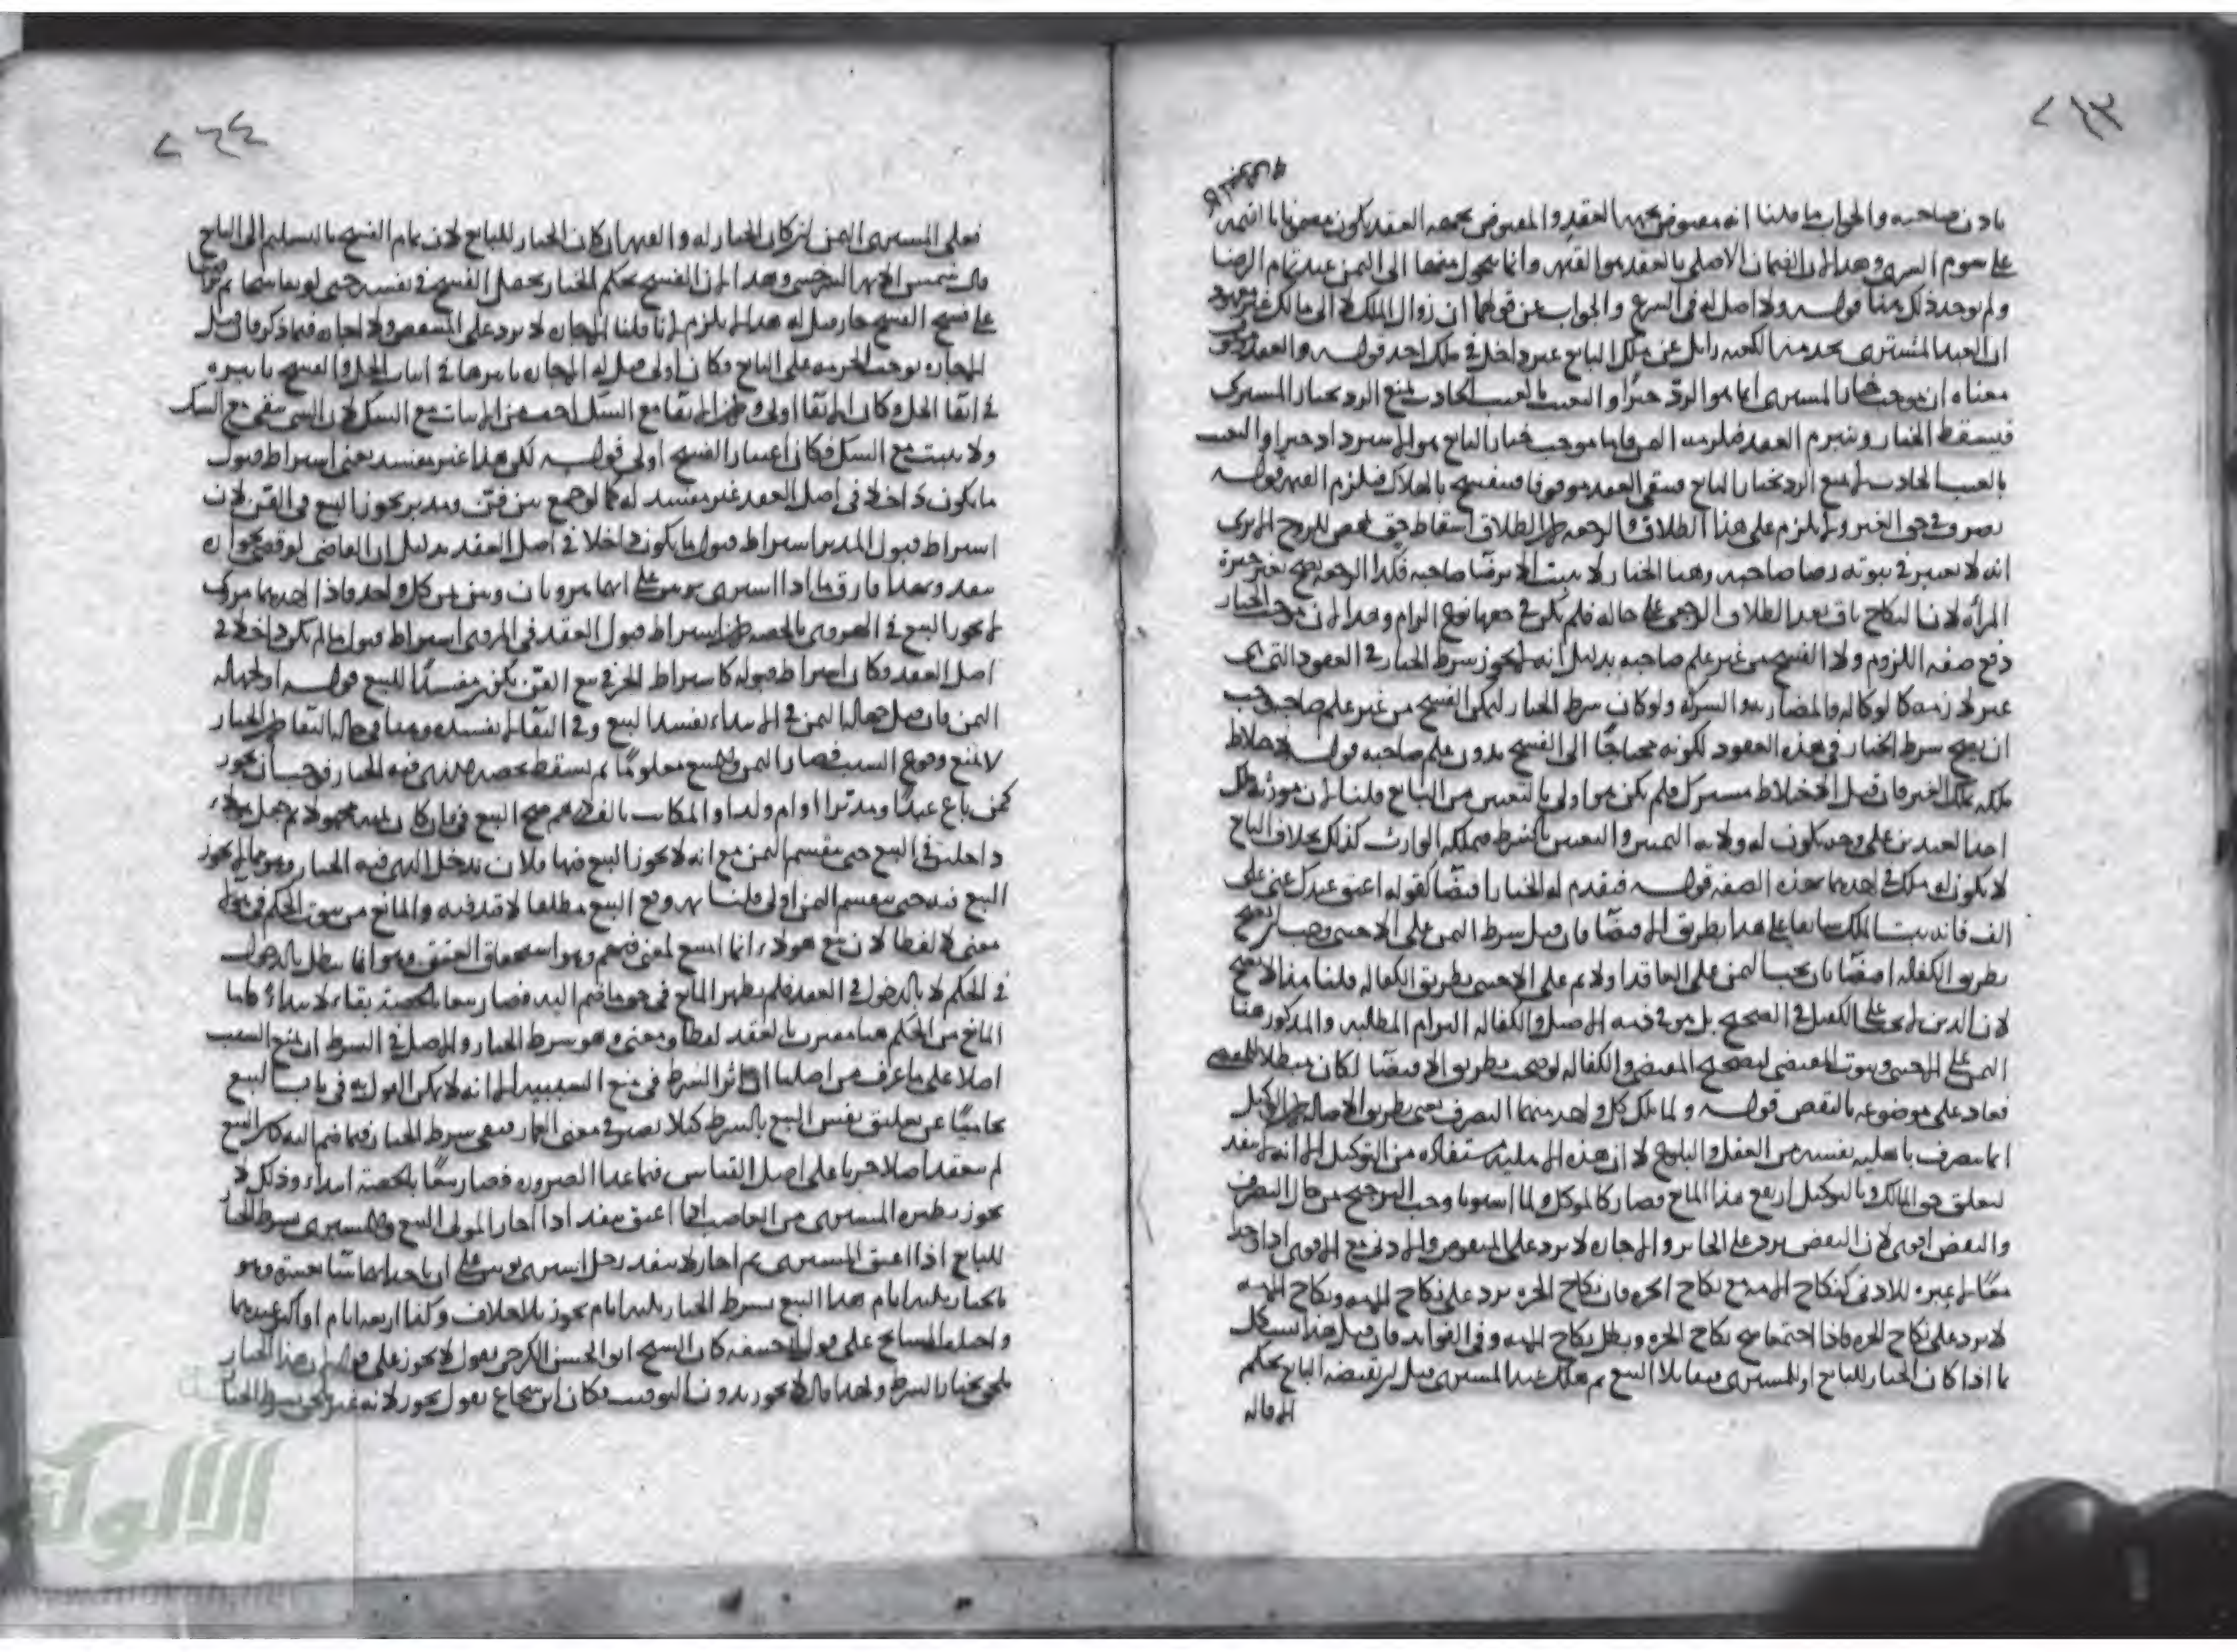 ٢٦٣
باذن صاحبه والجواب ما قلنا انه مقبوض بجهة العقد والمقبوض بجهة العقد يكون مضمونا بالقيمة
على سوم الشرى وهذا لان الضمان الاصلي بالعقد هو القيمة وانما يتحول منها الى الثمن عند تمام الرضا
ولم يوجد ذلك هنا قوله ولا اصل له في الشرع والجواب عن قولهما ان زوال الملك لا الى مالك غير
ان العبد المشترى لخدمة الكعبة زايل عن ملك البايع غير داخل في ملك احد قوله والعقد
معناه ان موجب خيار المشترى انما هو الرد جبرا والتعيب بالعيب الحادث يمنع الرد بخيار المشترى
فيسقط الخيار وينبرم العقد فيلزمه الثمن فاما موجب خيار البايع هو الاسترداد جبرا والتعيب
بالعيب الحادث لا يمنع الرد بخيار البايع فيبقى العقد موقوفا فينفسخ بالهلاك فيلزم القيمة قوله
تصرف في حق الغير ولا يلزم على هذا الطلاق والرجعة لان الطلاق اسقاط حق محض للزوج الا يرى
انه لا يعتبر في ثبوته رضا صاحبه وهنا الخيار لا يثبت الا برضا صاحبه فكذا الرجعة
المرأة لان النكاح باق بعد الطلاق الرجعي على حاله فلم يكن في حقها نوع الزام وهذا لان موجب الخيار
دفع صفة اللزوم ولا الفسخ من غير علم صاحبه بدليل انه لا يجوز شرط الخيار في العقود التي هي
غير لازمة كالوكالة والمضاربة والشركة ولو كان شرط الخيار ليمكن الفسخ من غير علم صاحبه يجب
ان يصح شرط الخيار في هذه العقود لكونه محتاجا الى الفسخ بدون علم صاحبه قوله لاختلاط
ملكه بملك الغير فان قيل الاختلاط مشترك فلم يكن هو اولى بالتعيين من البايع قلنا لان مورثه ملك
احد العبدين على وجه يكون له ولاية التمييز والتعيين بالشرط فيملكه الوارث كذلك بخلاف البايع
لا يكون له ملك في احدهما بهذه الصفة قوله فيقدم له الخيار اقتضا كقوله اعتق عبدك عني على
الف فانه يثبت الملك سابقا على هذا بطريق الاقتضا فان قيل شرط الثمن على الاجنبي وجب ان يصح
بطريق الكفالة اقتضا بان يجب الثمن على العاقد اولا ثم على الاجنبي بطريق الكفالة قلنا هذا لا يصح
لان الدين لا يجب على الكفيل في الصحيح بل هو في ذمة الاصيل والكفالة التزام المطالبة والمذكور هنا
الثمن على الاجنبي وثبوت المقتضى لتصحيح المقتضي والكفالة لو صحت بطريق الاقتضا لكان مبطلا للمقتضي
فعاد على موضوعه بالنقض قوله ولما ملك كل واحد منهما التصرف يعني بطريق الاصالة لان الوكيل
انما يتصرف باهلية نفسه من العقل والبلوغ لا ان هذه الاهلية مستفادة من التوكيل الا انه لم ينفذ
لتعلق حق المالك وبالتوكيل ارتفع هذا المانع فصار كالموكل ولما استويا وجب الترجيح من حال التصرف
والنقض اقوى لان النقض يرد على الجائز والاجازة لا ترد على المنقوض والادنى مع الاقوى اذا اجتمعا
لا عبرة للادنى كنكاح الامة مع نكاح الحرة فان نكاح الحرة يرد على نكاح الامة ونكاح الامة
لا يرد على نكاح الحرة فاذا اجتمعا صح نكاح الحرة وبطل نكاح الامة وفي الفوائد فان قيل هذا يشكل
بما اذا كان الخيار للبايع او للمشترى فتقايلا البيع ثم هلك عند المشترى قبل ان يقبضه البايع بحكم
الاقالة
٢٦٤
فعلى المشترى الثمن ان كان الخيار له والقيمة ان كان الخيار للبايع لان تمام الفسخ بالتسليم الى البايع
قال شمس الائمة السرخسي وهذا لان الفسخ بحكم الخيار يحصل الفسخ في نفسه حتى لو تفاسخا ثم
على فسخ الفسخ جاز قيل له هذا لا يلزم لانا قلنا الاجازة لا ترد على المنتقض ولا اجازة فيما ذكر فان قيل
الاجازة توجب الحرمة على البايع فكان اولى قيل له الاجازة تاثيرها في اثبات الحل والفسخ تاثيره
في ابقا الحل وكان الابقا اولى لان الابقا مع الشك احق من الاثبات مع الشك لان الشي يبقى مع الشك
ولا يثبت مع الشك فكان اعتبار الفسخ اولى قوله لكن هذا غير مفسد يعني اشتراط قبول
ما يكون داخلا في اصل العقد غير مفسد له كما لو جمع بين قن ومدبر يجوز البيع في القن لان
اشتراط قبول المدبر اشتراط قبول ما يكون داخلا في اصل العقد بدليل ان القاضي لو قضى بجوازه
ينفذ وبهذا فارق ما اذا اشترى ثوبين على انهما هرويان وبين ثمن كل واحد فاذا احدهما مروي
لا يجوز البيع في الهروي بالحصة لان اشتراط قبول العقد في المروي اشتراط قبول ما لم يكن داخلا في
اصل العقد فكان اشتراط قبوله كاشتراط الحر في بيع القن يكون مفسدا للبيع قوله او لجهالة
الثمن فان قيل جهالة الثمن في الابتداء يفسد البيع وفي البقا لا يفسده وهنا في حالة البقا لان الخيار
لا يمنع وقوع السبب فصار الثمن والمبيع معلوما ثم يسقط حصة الذي فيه الخيار فوجب ان يجوز
كمن باع عبدا ومدبرا او ام ولد او المكاتب بالف درهم صح البيع في القن وان كان ثمنه مجهولا ثم جعل هولاء
داخلين في البيع حتى ينقسم الثمن مع انه لا يجوز البيع فيها فلان يدخل الذي فيه الخيار وهو مما يجوز
البيع فيه حتى ينقسم الثمن اولى قلنا ثمه وقع البيع مطلقا لا قيد فيه والمانع من ثبوت الحكم في
معنى لا لفظا لان بيع هولاء انما امتنع لمعنى فيهم وهو استحقاق العتق وهو انما يبطل بالدخول
في الحكم لا بالدخول في العقد فلم يظهر المانع في حق ما ضم اليه فصار بيعا بالحصة بقاء لا ابتداء فاما
المانع من الحكم هنا مقترن بالعقد لفظا ومعنى وهو شرط الخيار والاصل في الشرط ان يمنع السبب
اصلا على ما عرف من اصلنا ان اثر الشرط في منع السببية الا انه لا يمكن القول به في باب البيع
تحاميا عن تعليق نفس البيع بالشرط كيلا يصير في معنى القمار فبقي شرط الخيار فيما ضم اليه كان البيع
لم ينعقد اصلا جريا على اصل القياس فيما عدا الضرورة فصار بيعا بالحصة ابتداء وذلك لا
يجوز نظيره المشترى من الغاصب اذا اعتق ينفذ اذا اجاز المولى البيع والمشترى بشرط الخيار
للبايع اذا اعتق المشترى ثم اجاز لا ينفذ رجل اشترى ثوبين على ان ياخذ ايهما شا بعشرة وهو
بالخيار ثلاثة ايام هذا البيع بشرط الخيار ثلاثة ايام يجوز بلا خلاف وكذا اربعة ايام او اكثر عندهما
واختلف المشايخ على قول ابي حنيفة كان الشيخ ابو الحسن الكرخي يقول لا يجوز على قوله لان هذا الخيار
ملحق بخيار الشرط ولهذا قال لا يجوز بدون التوقيت فكان ابن شجاع يقول يجوز لانه غير ملحق بشرط الخيار
الألوكة